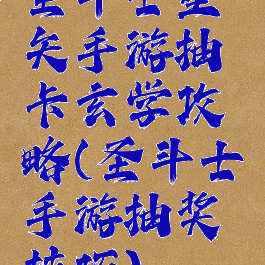 圣斗士圣
矢手游抽
卡玄学攻
略(圣斗士
手游抽奖
技巧)